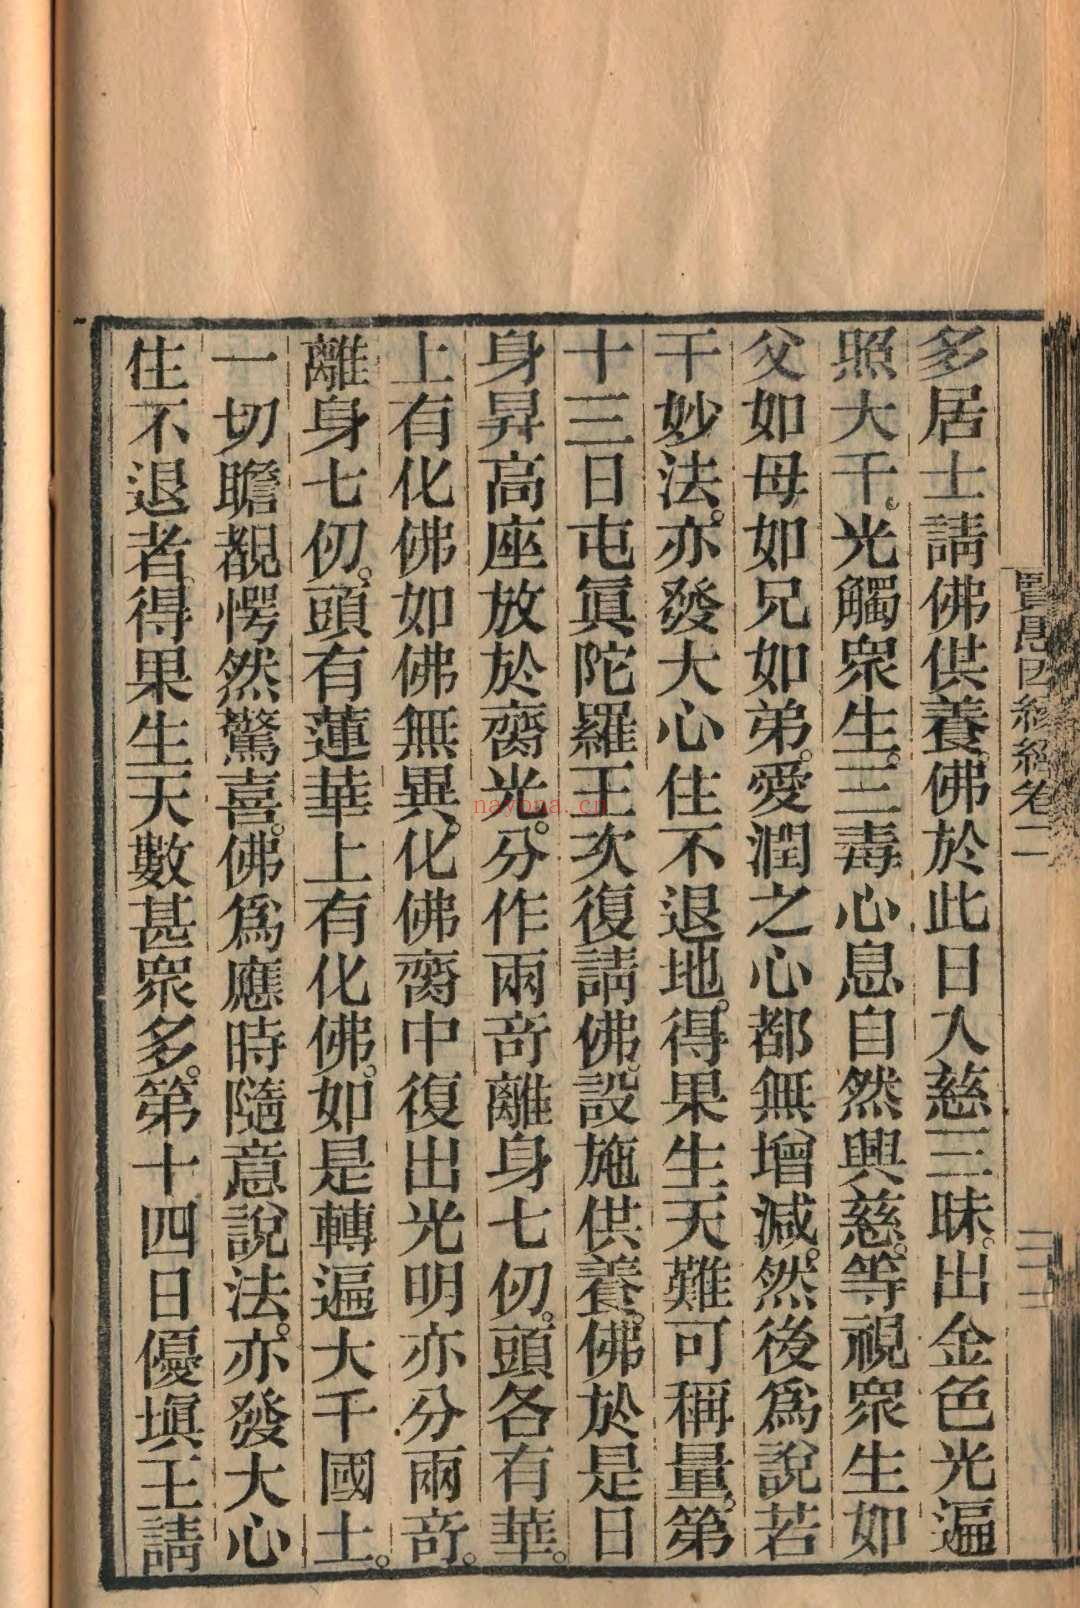 多居士請佛供養。佛於此日入慈三昧。出金色光遍
照大千。光觸眾生。三毒心息自然興慈。等視眾生如
父如母如兄如弟。愛潤之心都無增減。然後爲說若
干妙法。亦發大心住不退地。得果生天難可稱量。第
十三日屯眞陀羅王次復請佛。設施供養。佛於是日
身昇高座放於齎光。分作兩奇離身七仞。頭各有華。
上有化佛如佛無異。化佛齎中復出光明亦分兩奇。
離身七仞。頭有蓮華上有化佛。如是轉遍大千國土。
一切瞻覩愕然驚喜。佛爲應時隨意說法。亦發大心
住不退者。得果生天數甚眾多。第十四日優塡王請
賢愚因緣經卷二
nayona.cn